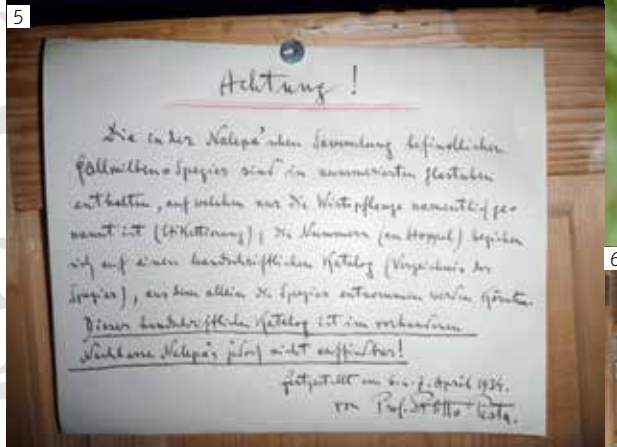 5
Achtung !
Die in der Nalepa'schen Sammlung befindlichen
Gallmilben-Spezies sind in nummerierten Glastuben
enthalten, auf welchen nur die Wirtspflanze namentlich ge-
nannt ist (Etikettierung); die Nummern (am Stoppel) beziehen
sich auf einen handschriftlichen Katalog (Verzeichnis der
Spezies), aus dem allein die Spezies entnommen werden könnten.
Dieser handschriftliche Katalog ist im vorhandenen
Nachlasse Nalepa's jedoch nicht auffindbar!
festgestellt am 6. u. 7. April 1934.
von Prof. Dr Otto Pesta.
6